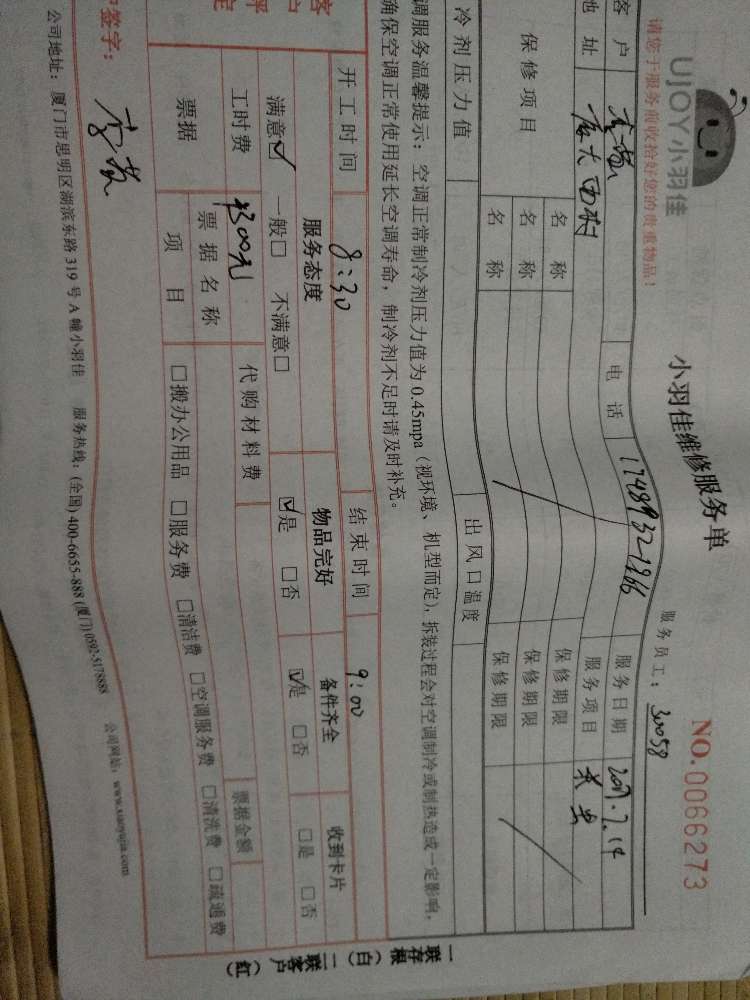 UJOY小羽佳
小羽佳维修服务单
NO.0066273
请您于服务前收拾好您的贵重物品!
服务员工: 30058
客户 电话 服务日期 2017.7.14
地址 厦大西村 服务项目 杀虫
保修项目 名称 保修期限
名称 保修期限
名称 保修期限
冷剂压力值 出风口温度
调服务温馨提示: 空调正常制冷剂压力值为0.45mpa(视环境、机型而定), 拆装过程会对空调制冷或制热造成一定影响,
确保空调正常使用延长空调寿命, 制冷剂不足时请及时补充。
开工时间 8:30 结束时间 9:00
服务态度 物品完好 备件齐全 收到卡片
满意☑ 一般□ 不满意□ ☑是 □否 ☑是 □否 □是 □否
工时费 300元 代购材料费
票据 票据名称 票据金额
项目 □搬办公用品 □服务费 □清洁费 □空调服务费 □清洗费 □疏通费
签字:
公司地址: 厦门市思明区湖滨东路319号A幢小羽佳 服务热线: (全国) 400-6655-888 (厦门) 0592-5178888 公司网站: www.xiaoyujia.com
一联存根(白) 二联客户(红)